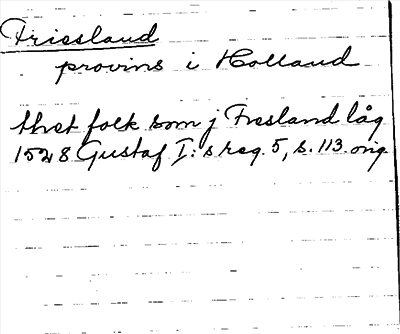 Friesland
provins i Holland
thet folk som j Fresland låg
1528 Gustaf I:s reg. 5, s. 113. orig.